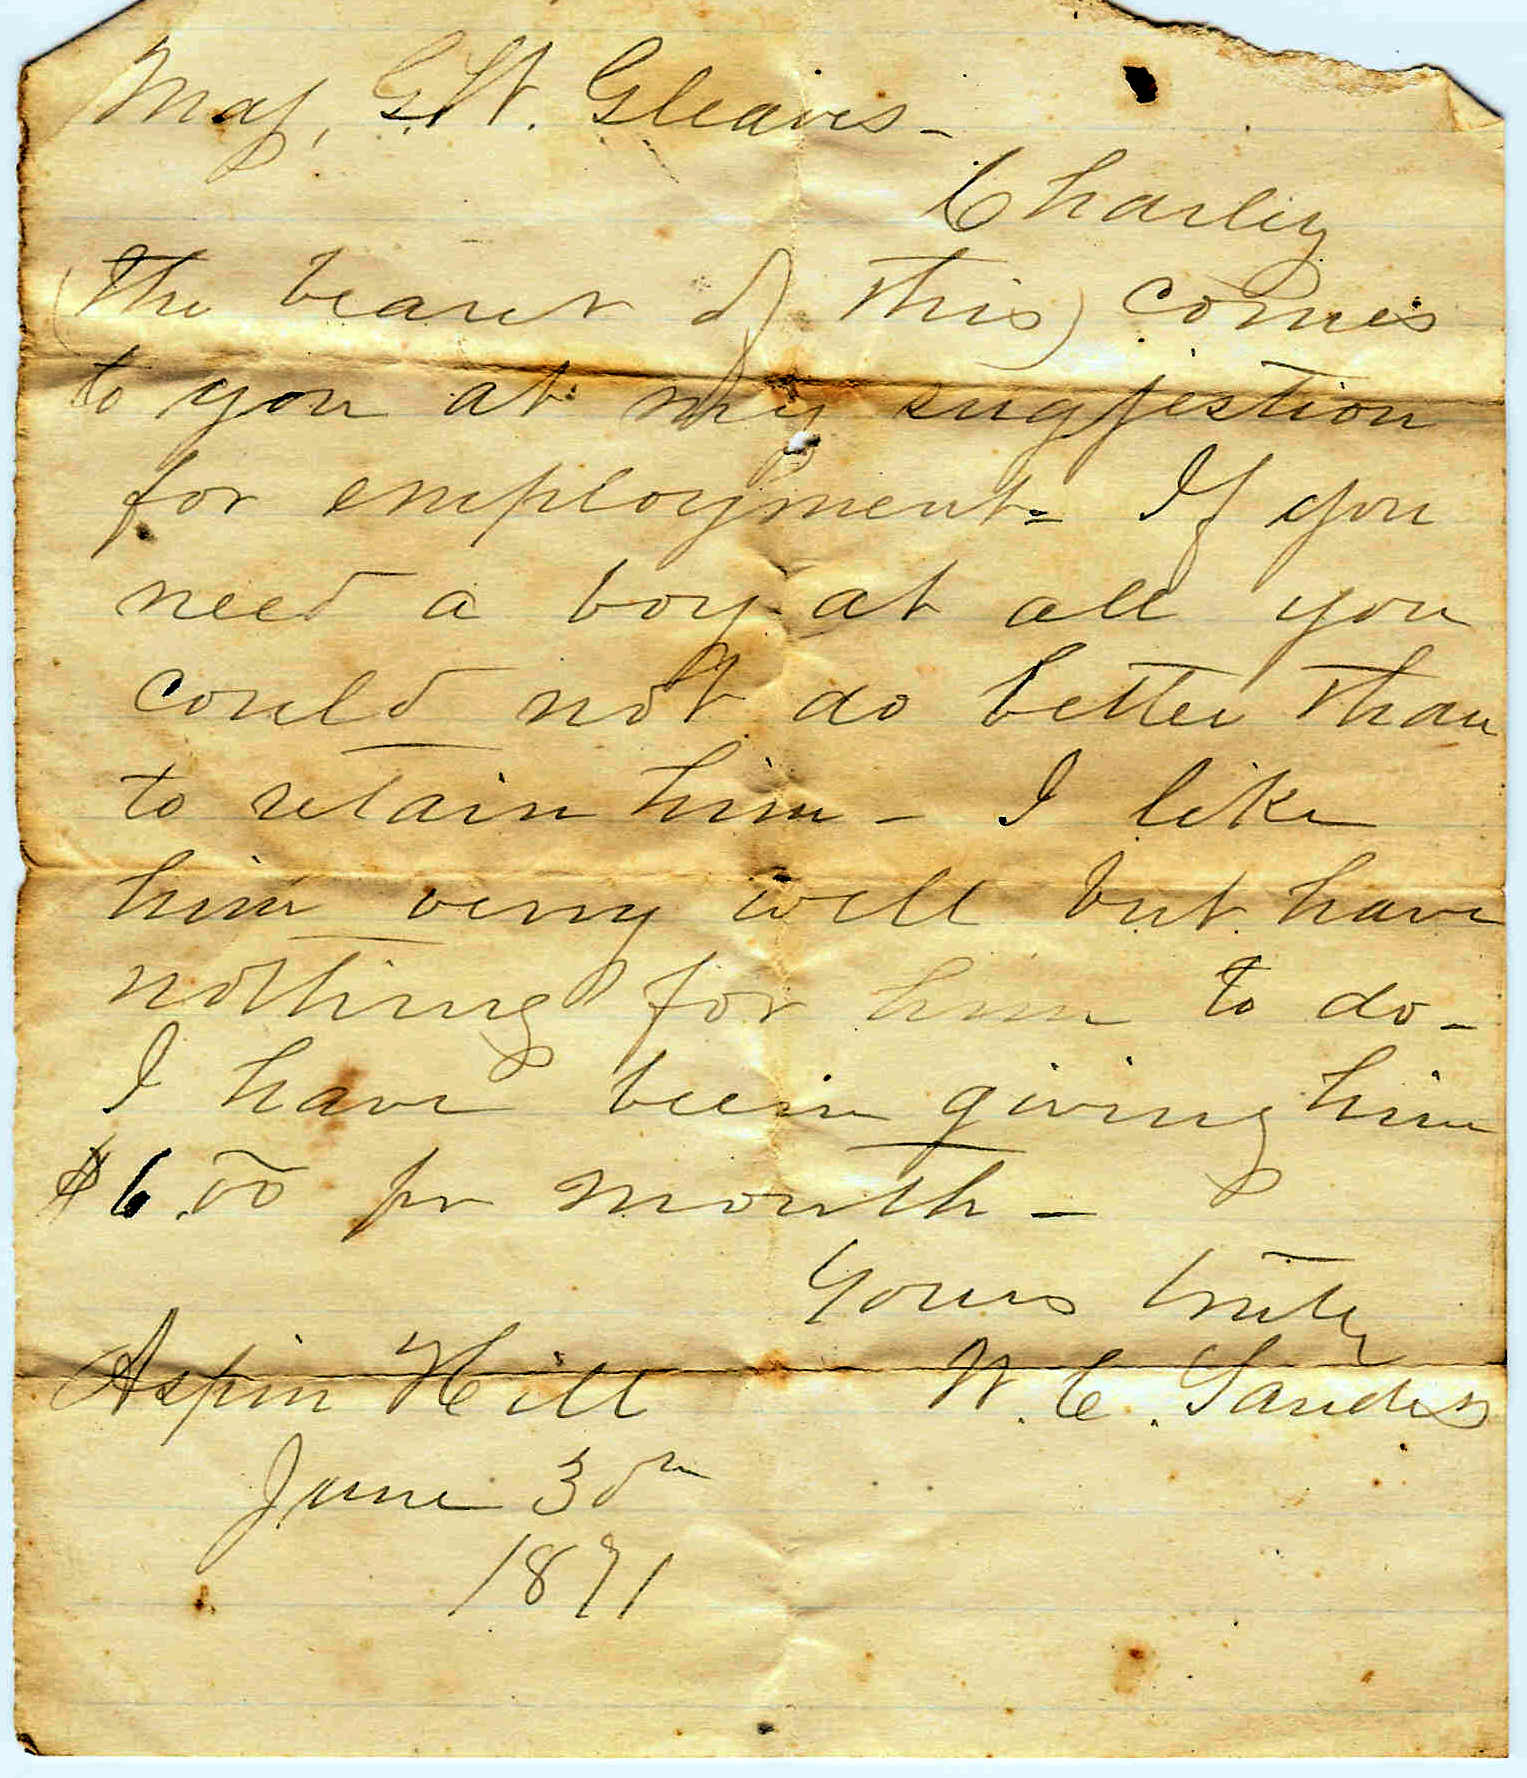 Maj, G.W. Gleaves -
Charley
(the bearer of this) comes
to you at my suggestion
for employment = If you
need a boy at all you
could not do better than
to retain him - I like
him very well but have
nothing for him to do -
I have been giving him
$6.00 pr month -
Yours truly
Aspin Hill W. C. Sanders
June 30th
1871